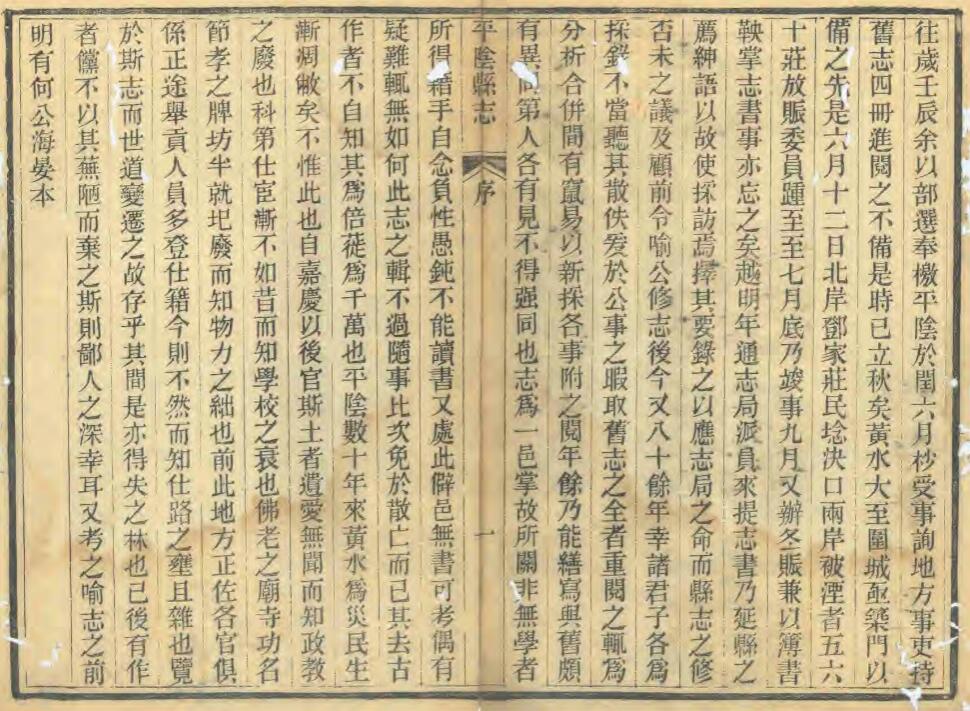 往歲壬辰余以部選奉檄平陰於閏六月杪受事詢地方事吏持
舊志四冊進閱之不備是時已立秋矣黃水大至圍城亟築門以
備之先是六月十二日北岸鄧家莊民埝決口兩岸被湮者五六
十莊放賑委員踵至至七月底乃竣事九月又辦冬賑兼以簿書
鞅掌志書事亦忘之矣越明年通志局派員來提志書乃延縣之
薦紳語以故使採訪焉擇其要錄之以應志局之命而縣志之修
否未之議及顧前令喻公修志後今又八十餘年幸諸君子各爲
採錄不當聽其散佚爰於公事之暇取舊志之全者重閱之輒爲
分析合併間有竄易以新採各事附之閱年餘乃能繕寫與舊頗
有異同第人各有見不得强同也志爲一邑掌故所關非無學者
平陰縣志 序 一
所得藉手自念負性愚鈍不能讀書又處此僻邑無書可考偶有
疑難輒無如何此志之輯不過隨事比次免於散亡而已其去古
作者不自知其爲倍蓰爲千萬也平陰數十年來黃水爲災民生
漸凋敝矣不惟此也自嘉慶以後官斯土者遺愛無聞而知政教
之廢也科第仕宦漸不如昔而知學校之衰也佛老之廟寺功名
節孝之牌坊半就圮廢而知物力之絀也前此地方正佐各官俱
係正途舉貢人員多登仕籍今則不然而知仕路之壅且雜也覽
於斯志而世道變遷之故存乎其間是亦得失之林也已後有作
者儻不以其蕪陋而棄之斯則鄙人之深幸耳又考之喻志之前
明有何公海晏本